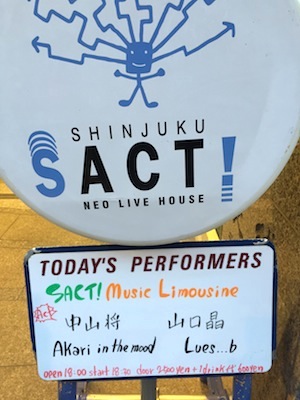 SHINJUKU
SACT!
NEO LIVE HOUSE
TODAY'S PERFORMERS
SACT! Music Limousine
中山将 山口晶
Akari in the mood Lues...b
open 18:00 start 18:30 door 2500yen + 1drink 600yen